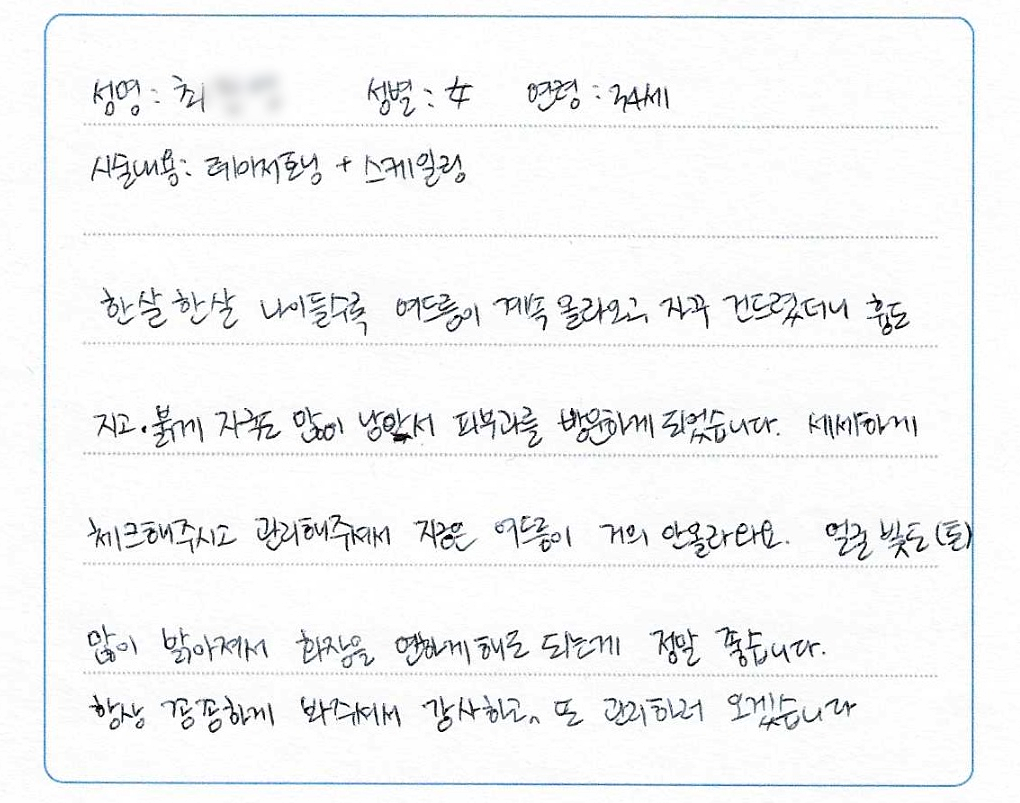 성명 : 최 성별 : 女 연령 : 34세
시술내용: 레이저토닝 + 스케일링
한살 한살 나이들수록 여드름이 계속 올라오고 자꾸 건드렸더니 흉도
지고·붉게 자국도 많이 남아서 피부과를 방문하게 되었습니다. 세세하게
체크해주시고 관리해주셔서 지금은 여드름이 거의 안올라와요. 얼굴 빛도(톤)
많이 밝아져서 화장을 연하게 해도 되는게 정말 좋습니다.
항상 꼼꼼하게 봐주셔서 감사하고, 또 관리하러 오겠습니다